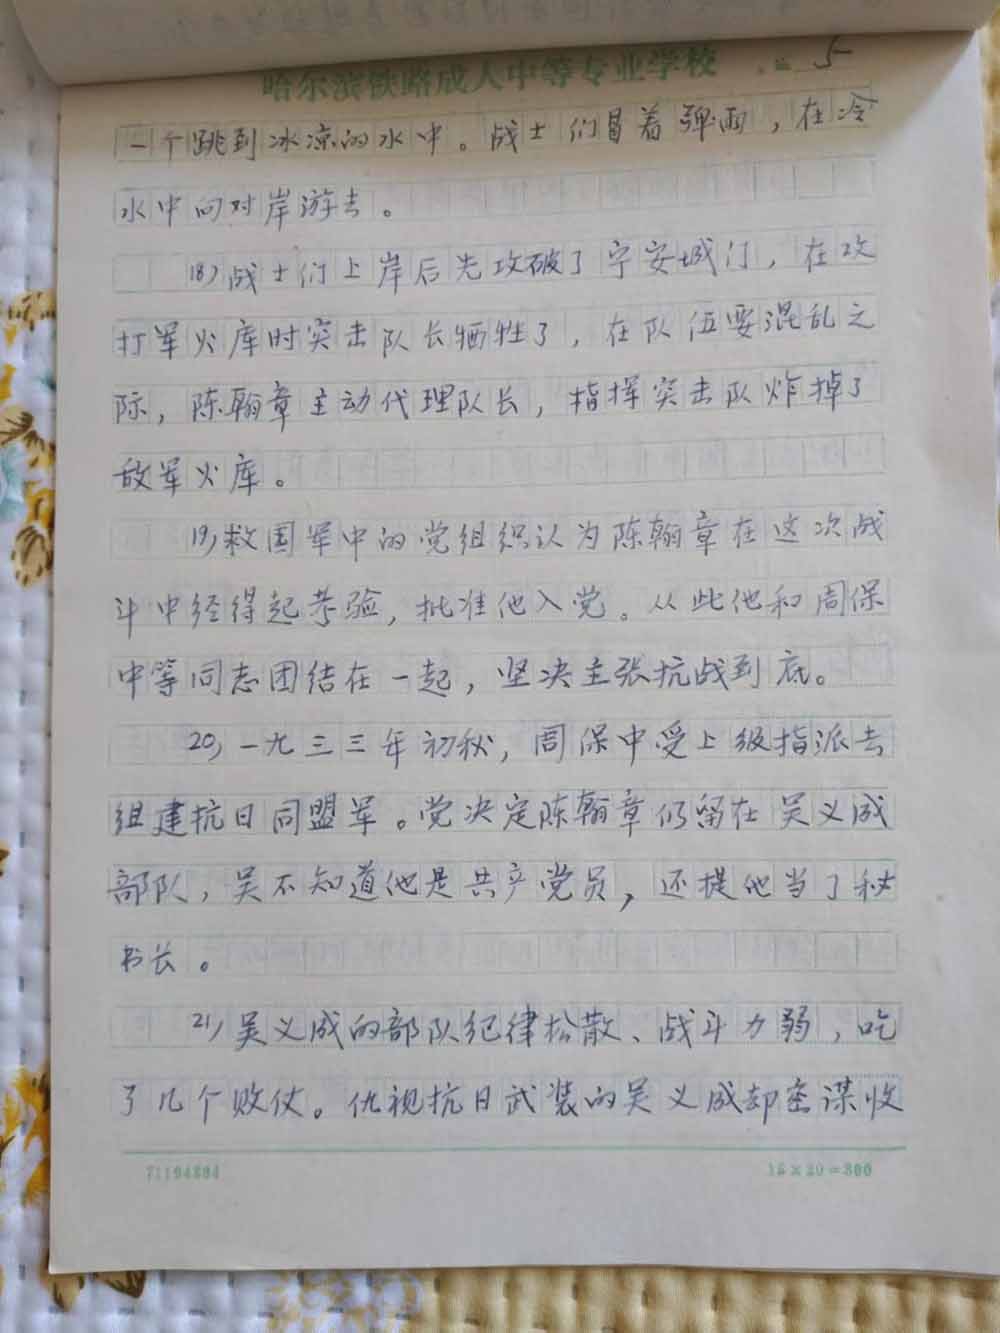 哈尔滨铁路成人中等专业学校 5
一个跳到冰凉的水中。战士们冒着弹雨，在冷
水中向对岸游去。
18)战士们上岸后先攻破了宁安城门，在攻
打军火库时突击队长牺牲了，在队伍要混乱之
际，陈翰章主动代理队长，指挥突击队炸掉了
敌军火库。
19)救国军中的党组织认为陈翰章在这次战
斗中经得起考验，批准他入党。从此他和周保
中等同志团结在一起，坚决主张抗战到底。
20)一九三三年初秋，周保中受上级指派去
组建抗日同盟军。党决定陈翰章仍留在吴义成
部队，吴不知道他是共产党员，还提他当了秘
书长。
21)吴义成的部队纪律松散、战斗力弱，吃
了几个败仗。仇视抗日武装的吴义成却密谋收
71194804 15×20=300